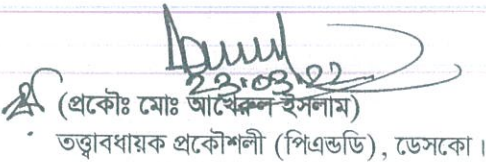 ২3:03:২২
(প্রকৌঃ মোঃ আখেরুল ইসলাম)
তত্ত্বাবধায়ক প্রকৌশলী (পিএন্ডডি), ডেসকো।